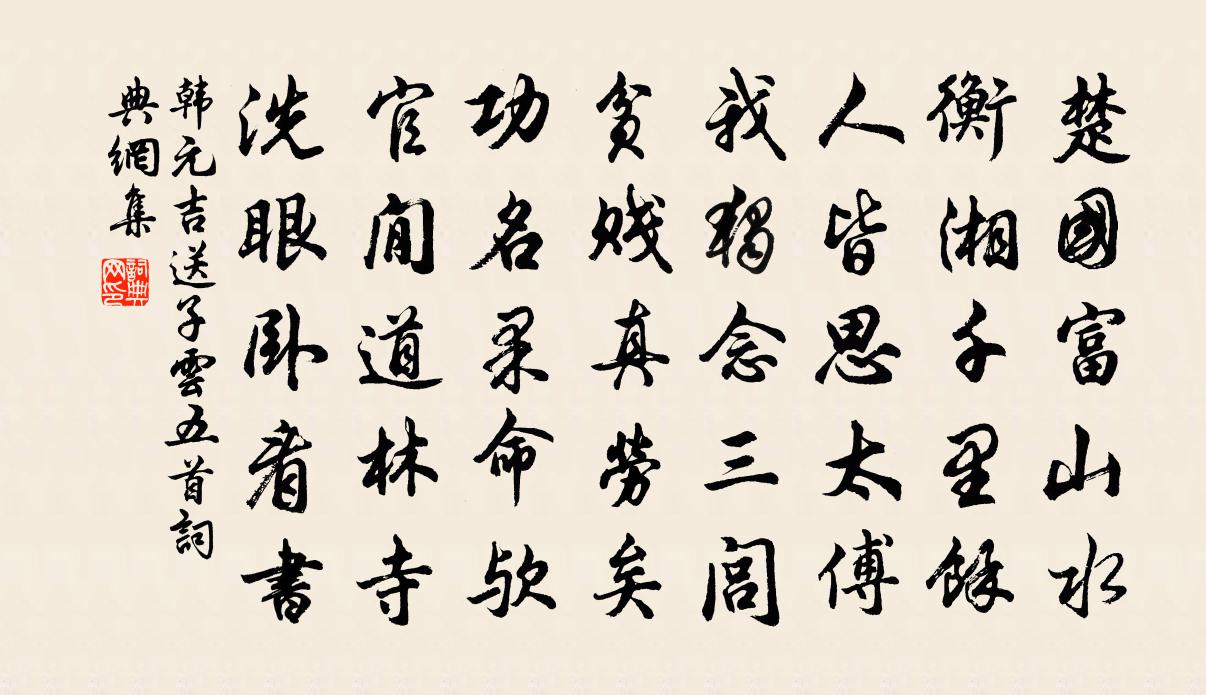 楚國富山水
衡湘千里餘
人皆思太傅
我獨念三閭
貧賤真勞矣
功名果命歟
官閒道林寺
洗眼卧看書
韩元吉送子雲五首詞
典網集
詞典
网印